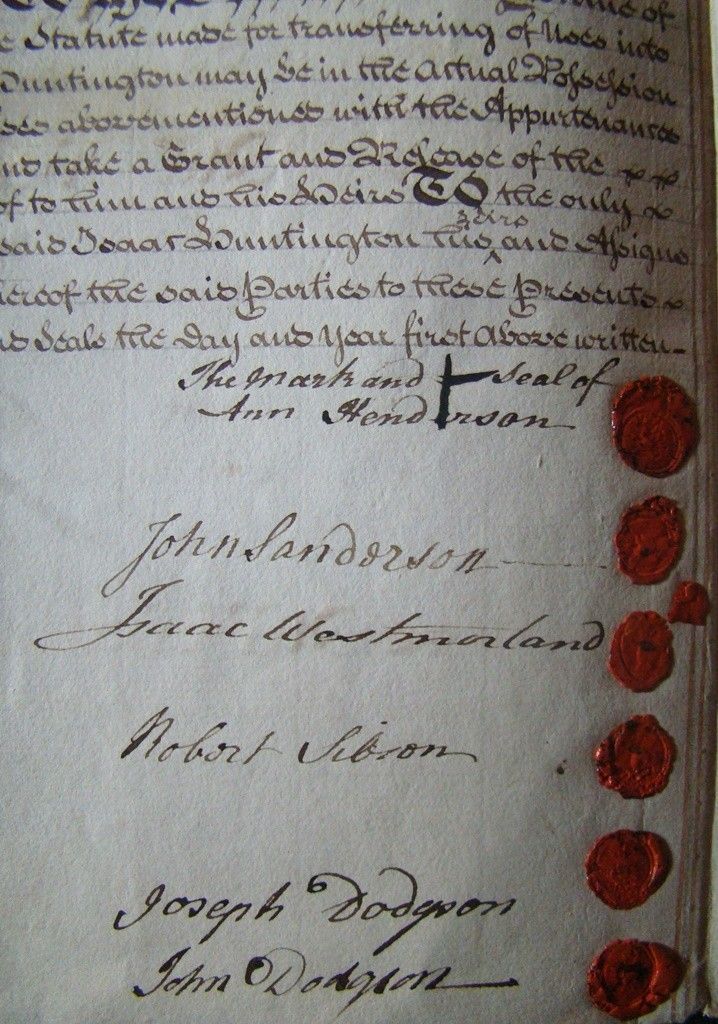 of
e Statute made for transferring of Uses into
Huntington may be in the Actual Possession
ses abovementioned with the Appurtenances
nd take a Grant and Release of the
of to him and his Heirs TO the only
said Isaac Huntington his ^ Heirs and Assigns
hereof the said Parties to these Presents
nd Seals the Day and Year first above written
The mark and Seal of
Ann Henderson
John Sanderson
Isaac Westmorland
Robert Sibson
Joseph Dodgson
John Dodgson